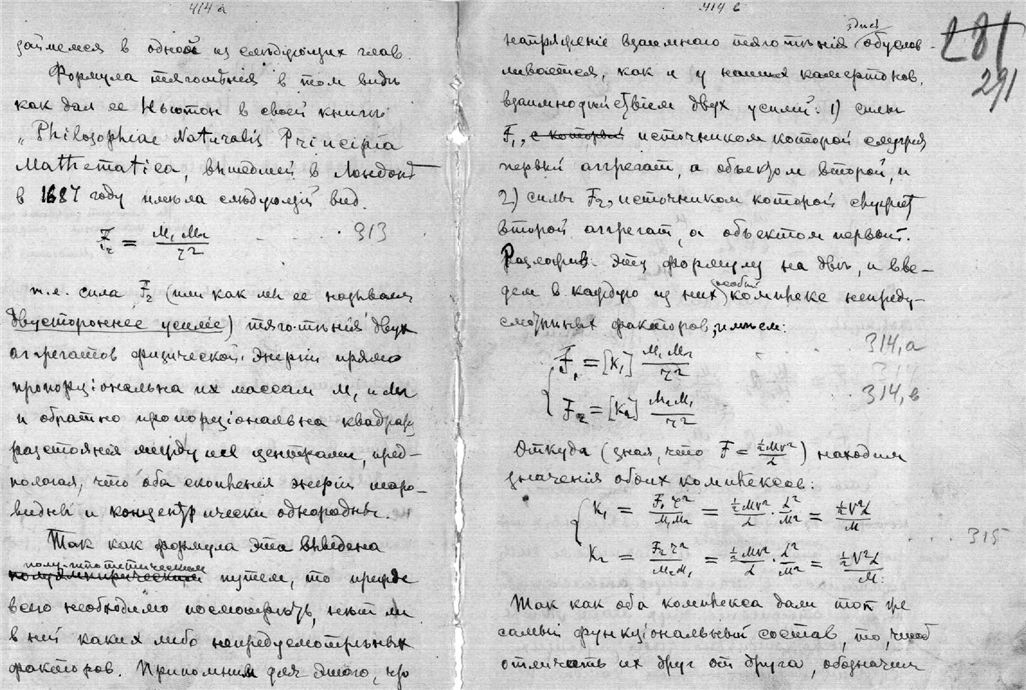 414 а
займемся в одной из слѣдующих глав.
Формула тяготѣнія в том видѣ
как дал ее Ньютон в своей книгѣ
„Philosophiae Naturalis Principia
Mathematica, вышедшей в Лондонѣ
в 1687 году имѣла слѣдующій вид.
F₁₂ = M₁ M₂ / r² 313
т.е. сила F₂ (или как мы ее назывaли
двустороннее усиліе) тяготѣнія двух
аггрегатов физической энергіи прямо
пропорціональна их массам M₁ и M₂
и обратно пропорціональна квадрату
разстоянія между их центрами, пред-
полагая, что оба скопленія энергіи шаро-
видны и концентрически однородны.
Так как формула эта выведена
полу-гипотетическим
путем, то прежде
всего необходимо посмотрѣть, нѣт ли
в ней каких либо непредусмотрѣнных
факторов. Припомним для этого, что
414 в
281
291
напряженіе взаимнаго тяготѣнія здѣсь обуслов-
ливается, как и у наших камертонов,
взаимнодѣйствіем двух усилій: 1) силы
F₁, с которой источником которой служит
первый аггрегат, а объектом второй, и
2) силы F₂, источником которой служит
второй аггрегат, а объектом первый.
Разложив эту формулу на двѣ, и вве-
дем в каждую из них особый комплекс непреду-
смотрѣнных факторов, имѣем:
F₁ = [K₁] M₁ M₂ / r² 314, а
314
F₂ = [K₂] M₂ M₁ / r² 314, в
Откуда (зная, что F = ½MV² / L) находим
значенія обоих комплексов:
K₁ = F₁ r² / M₁ M₂ = ½MV² / L · L² / M² = ½V²L / M
315
K₂ = F₂ r² / M₂ M₁ = ½MV² / L · L² / M² = ½V²L / M
Так как оба комплекса дали тот же
самый функціональный состав, то, чтоб
отличать их друг от друга, обозначим